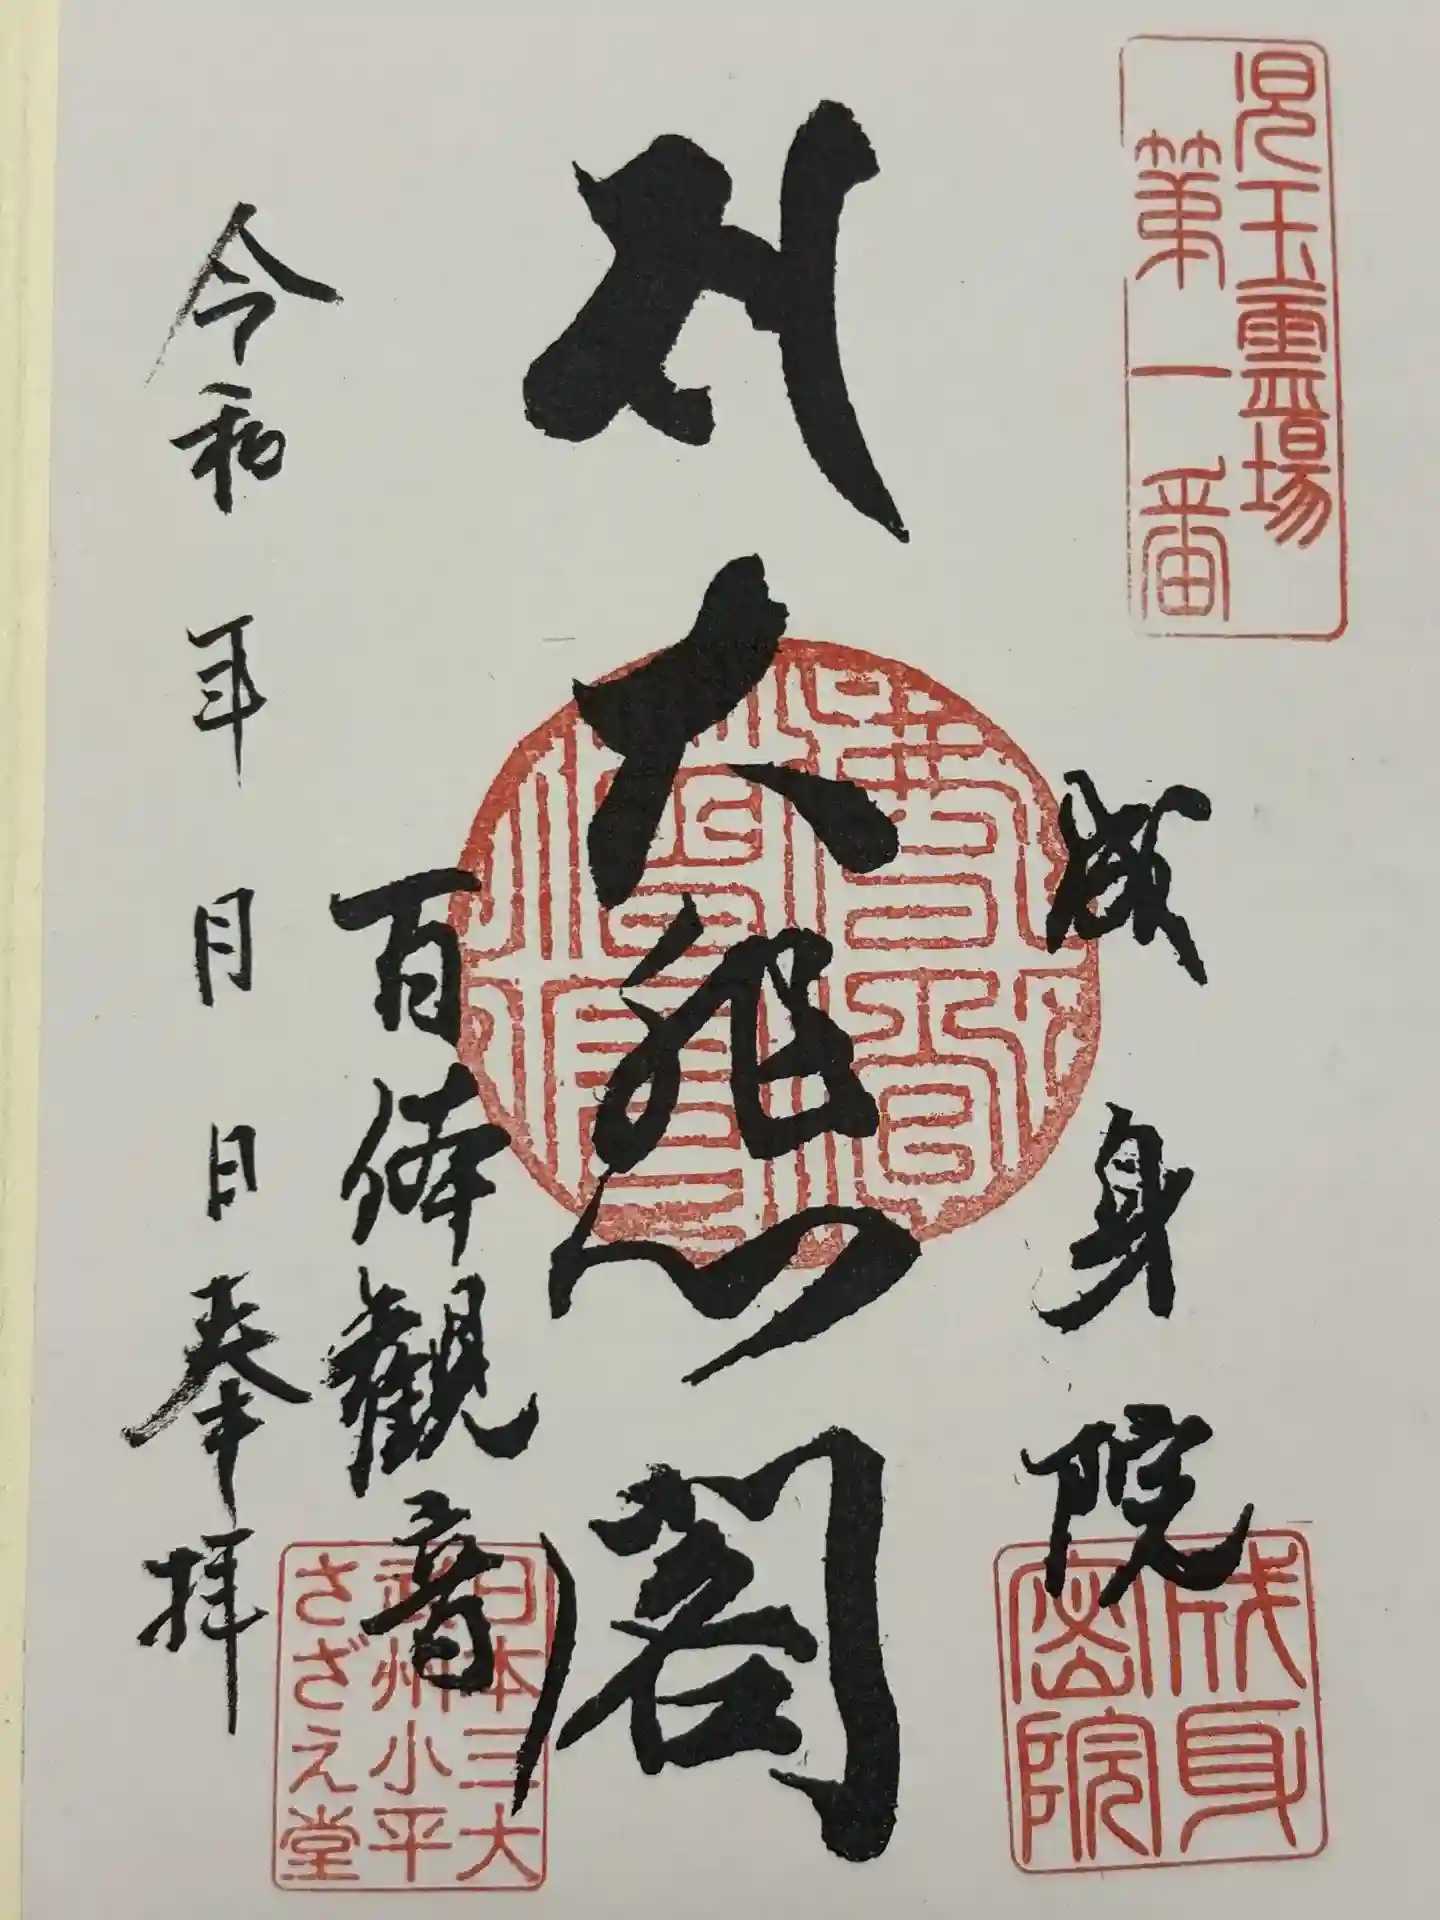 児玉霊場
第一番
成身院
成身
密院
大悲閣
百体観音
日本三大
武州小平
さざえ堂
令和 年 月 日奉拝